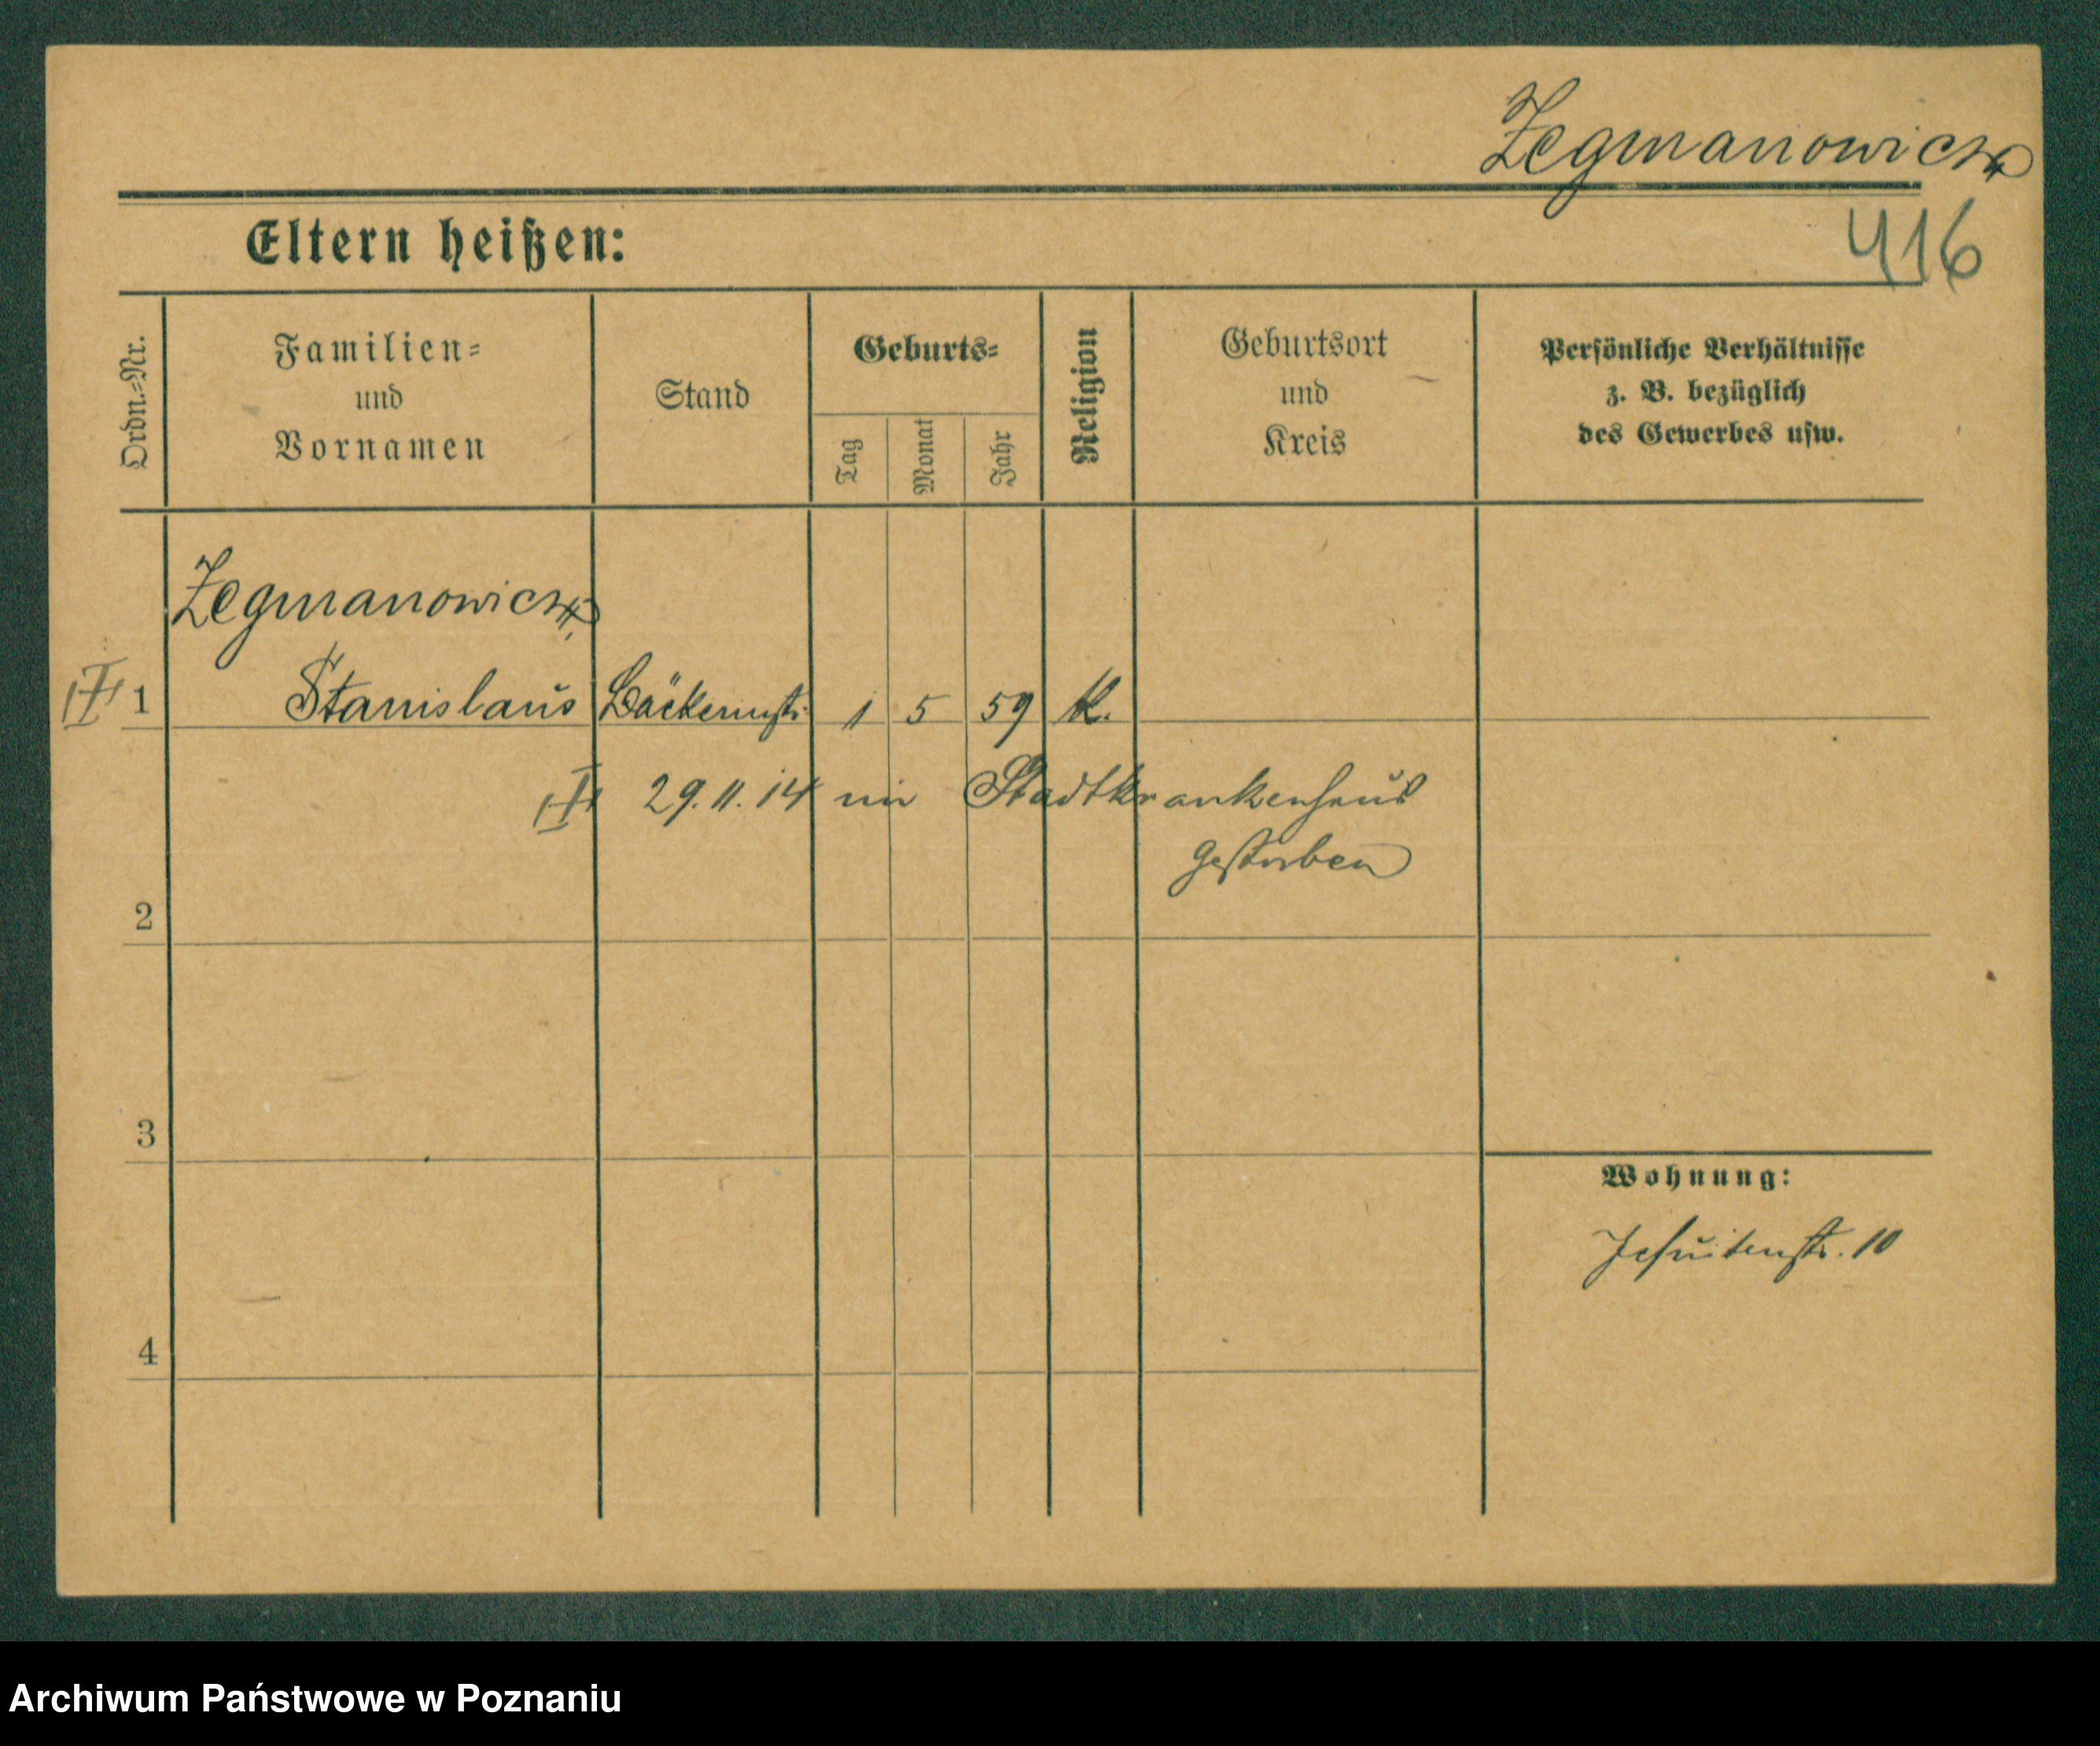 Zegmanowicz
Eltern heißen:
416
Ordn.=Nr.
Familien=
und
Vornamen
Stand
Geburts=
Tag
Monat
Jahr
Religion
Geburtsort
und
Kreis
Persönliche Verhältnisse
z. B. bezüglich
des Gewerbes usw.
Zegmanowicz,
1 Stanislaus Bäckermstr. 1 5 59 k.
29.11.14 im Stadtkrankenhaus
gestorben
2
3
Wohnung:
Jesuitenstr. 10
4
Archiwum Państwowe w Poznaniu